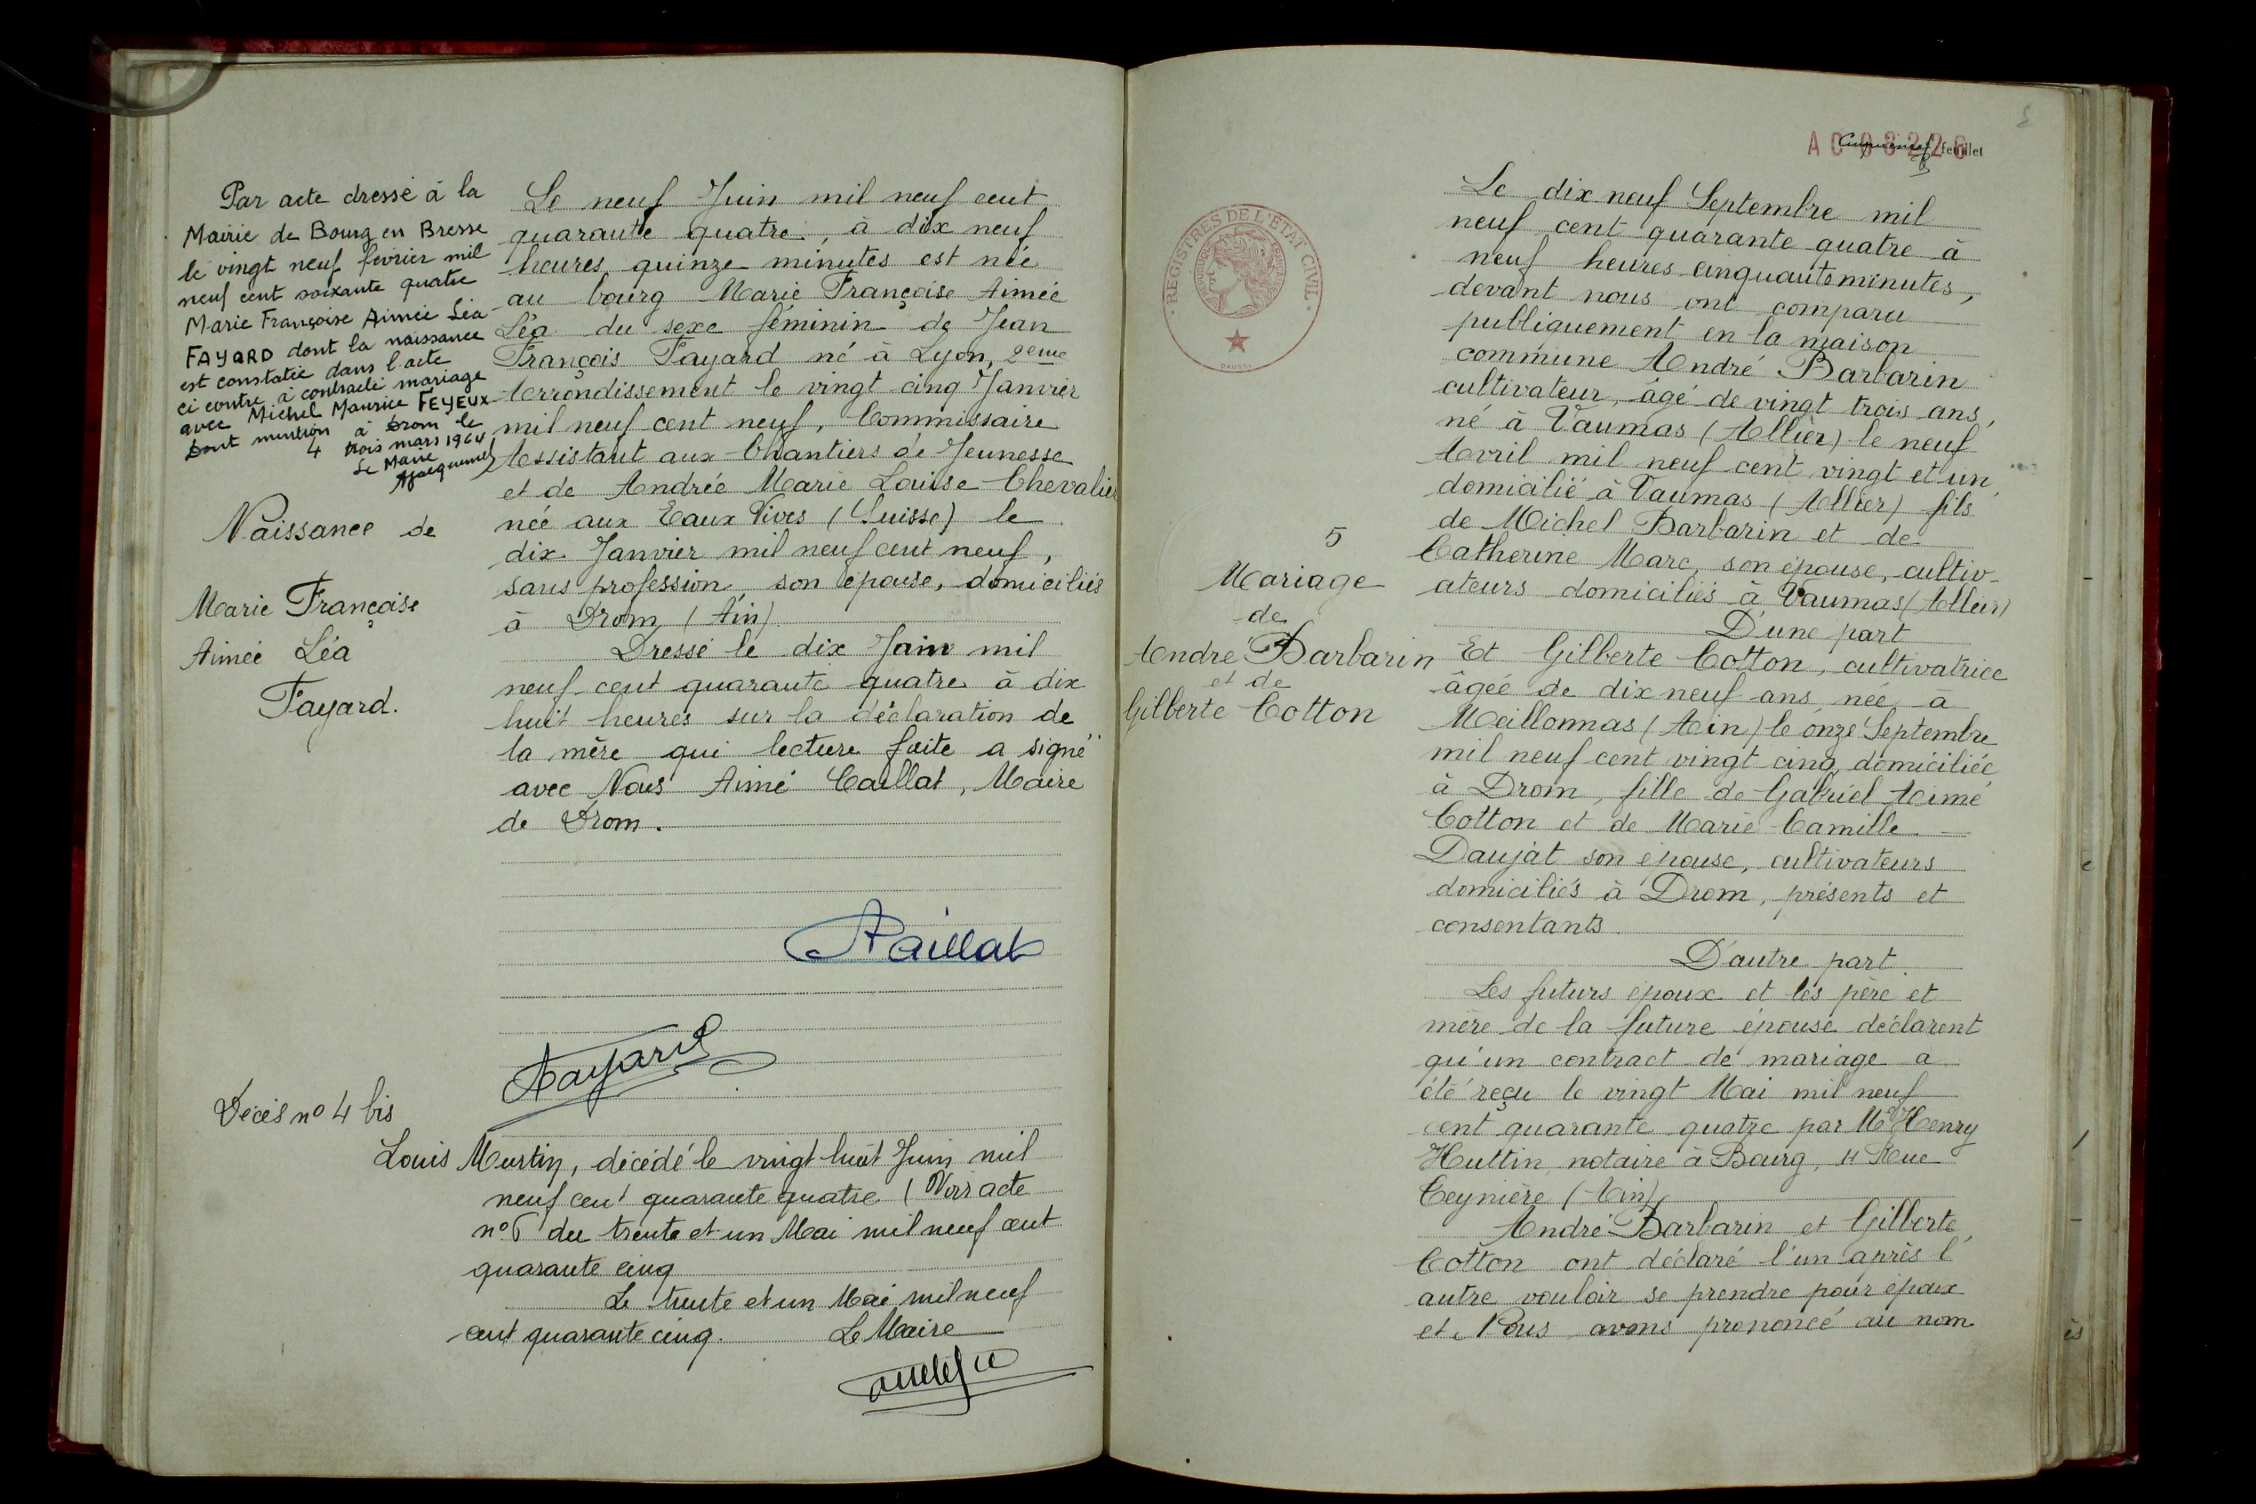 Par acte dressé à la
Mairie de Bourg en Bresse
le vingt neuf février mil
neuf cent soixante quatre
Marie Françoise Aimée Léa
FAYARD dont la naissance
est constatée dans l'acte
ci contre a contracté mariage
avec Michel Maurice FEYEUX
Dont mention à Drom le
4 trois mars 1964
Le Maire
Naissance de
Marie Françoise
Aimée Léa
Fayard.
Le neuf Juin mil neuf cent
quarante quatre, à dix neuf
heures quinze minutes est née
au bourg Marie Françoise Aimée
Léa du sexe féminin de Jean
François Fayard né à Lyon, 2eme
Arrondissement le vingt cinq Janvier
mil neuf cent neuf, Commissaire
Assistant aux Chantiers de Jeunesse
et de Andrée Marie Louise Chevalier
née aux Eaux Vives (Suisse) le
dix Janvier mil neuf cent neuf,
sans profession, son épouse, domiciliés
à Drom (Ain)
Dressé le dix Juin mil
neuf cent quarante quatre à dix
huit heures sur la déclaration de
la mère qui lecture faite a signé
avec Nous Aimé Caillat, Maire
de Drom.
ACaillat
AFayard
Décès no 4 bis
Louis Murtin, décédé le vingt huit Juin mil
neuf cent quarante quatre (Voir acte
no 6 du trente et un Mai mil neuf cent
quarante cinq
Le trente et un Mai mil neuf
cent quarante cinq. Le Maire
AC 03226
feuillet
REGISTRES DE L'ETAT CIVIL
5
Mariage
de
André Barbarin
et de
Gilberte Cotton
Le dix neuf Septembre mil
neuf cent quarante quatre à
neuf heures cinquante minutes,
devant nous ont comparu
publiquement en la maison
commune André Barbarin
cultivateur, âgé de vingt trois ans,
né à Vaumas (Allier) le neuf
Avril mil neuf cent vingt et un,
domicilié à Vaumas (Allier) fils
de Michel Barbarin et de
Catherine Marc, son épouse, cultiv-
ateurs domiciliés à Vaumas (Allier)
D'une part
Et Gilberte Cotton, cultivatrice
âgée de dix neuf ans, née à
Meillonnas (Ain) le onze Septembre
mil neuf cent vingt cinq, domiciliée
à Drom, fille de Gabriel Aimé
Cotton et de Marie Camille
Daujat son épouse, cultivateurs
domiciliés à Drom, présents et
consentants.
D'autre part.
Les futurs époux et les père et
mère de la future épouse déclarent
qu'un contract de mariage a
été reçu le vingt Mai mil neuf
cent quarante quatre par Me Henry
Huttin, notaire à Bourg, 4 Rue
Teynière (Ain)
André Barbarin et Gilberte
Cotton ont déclaré l'un après l'
autre vouloir se prendre pour époux
et Nous avons prononcé au nom